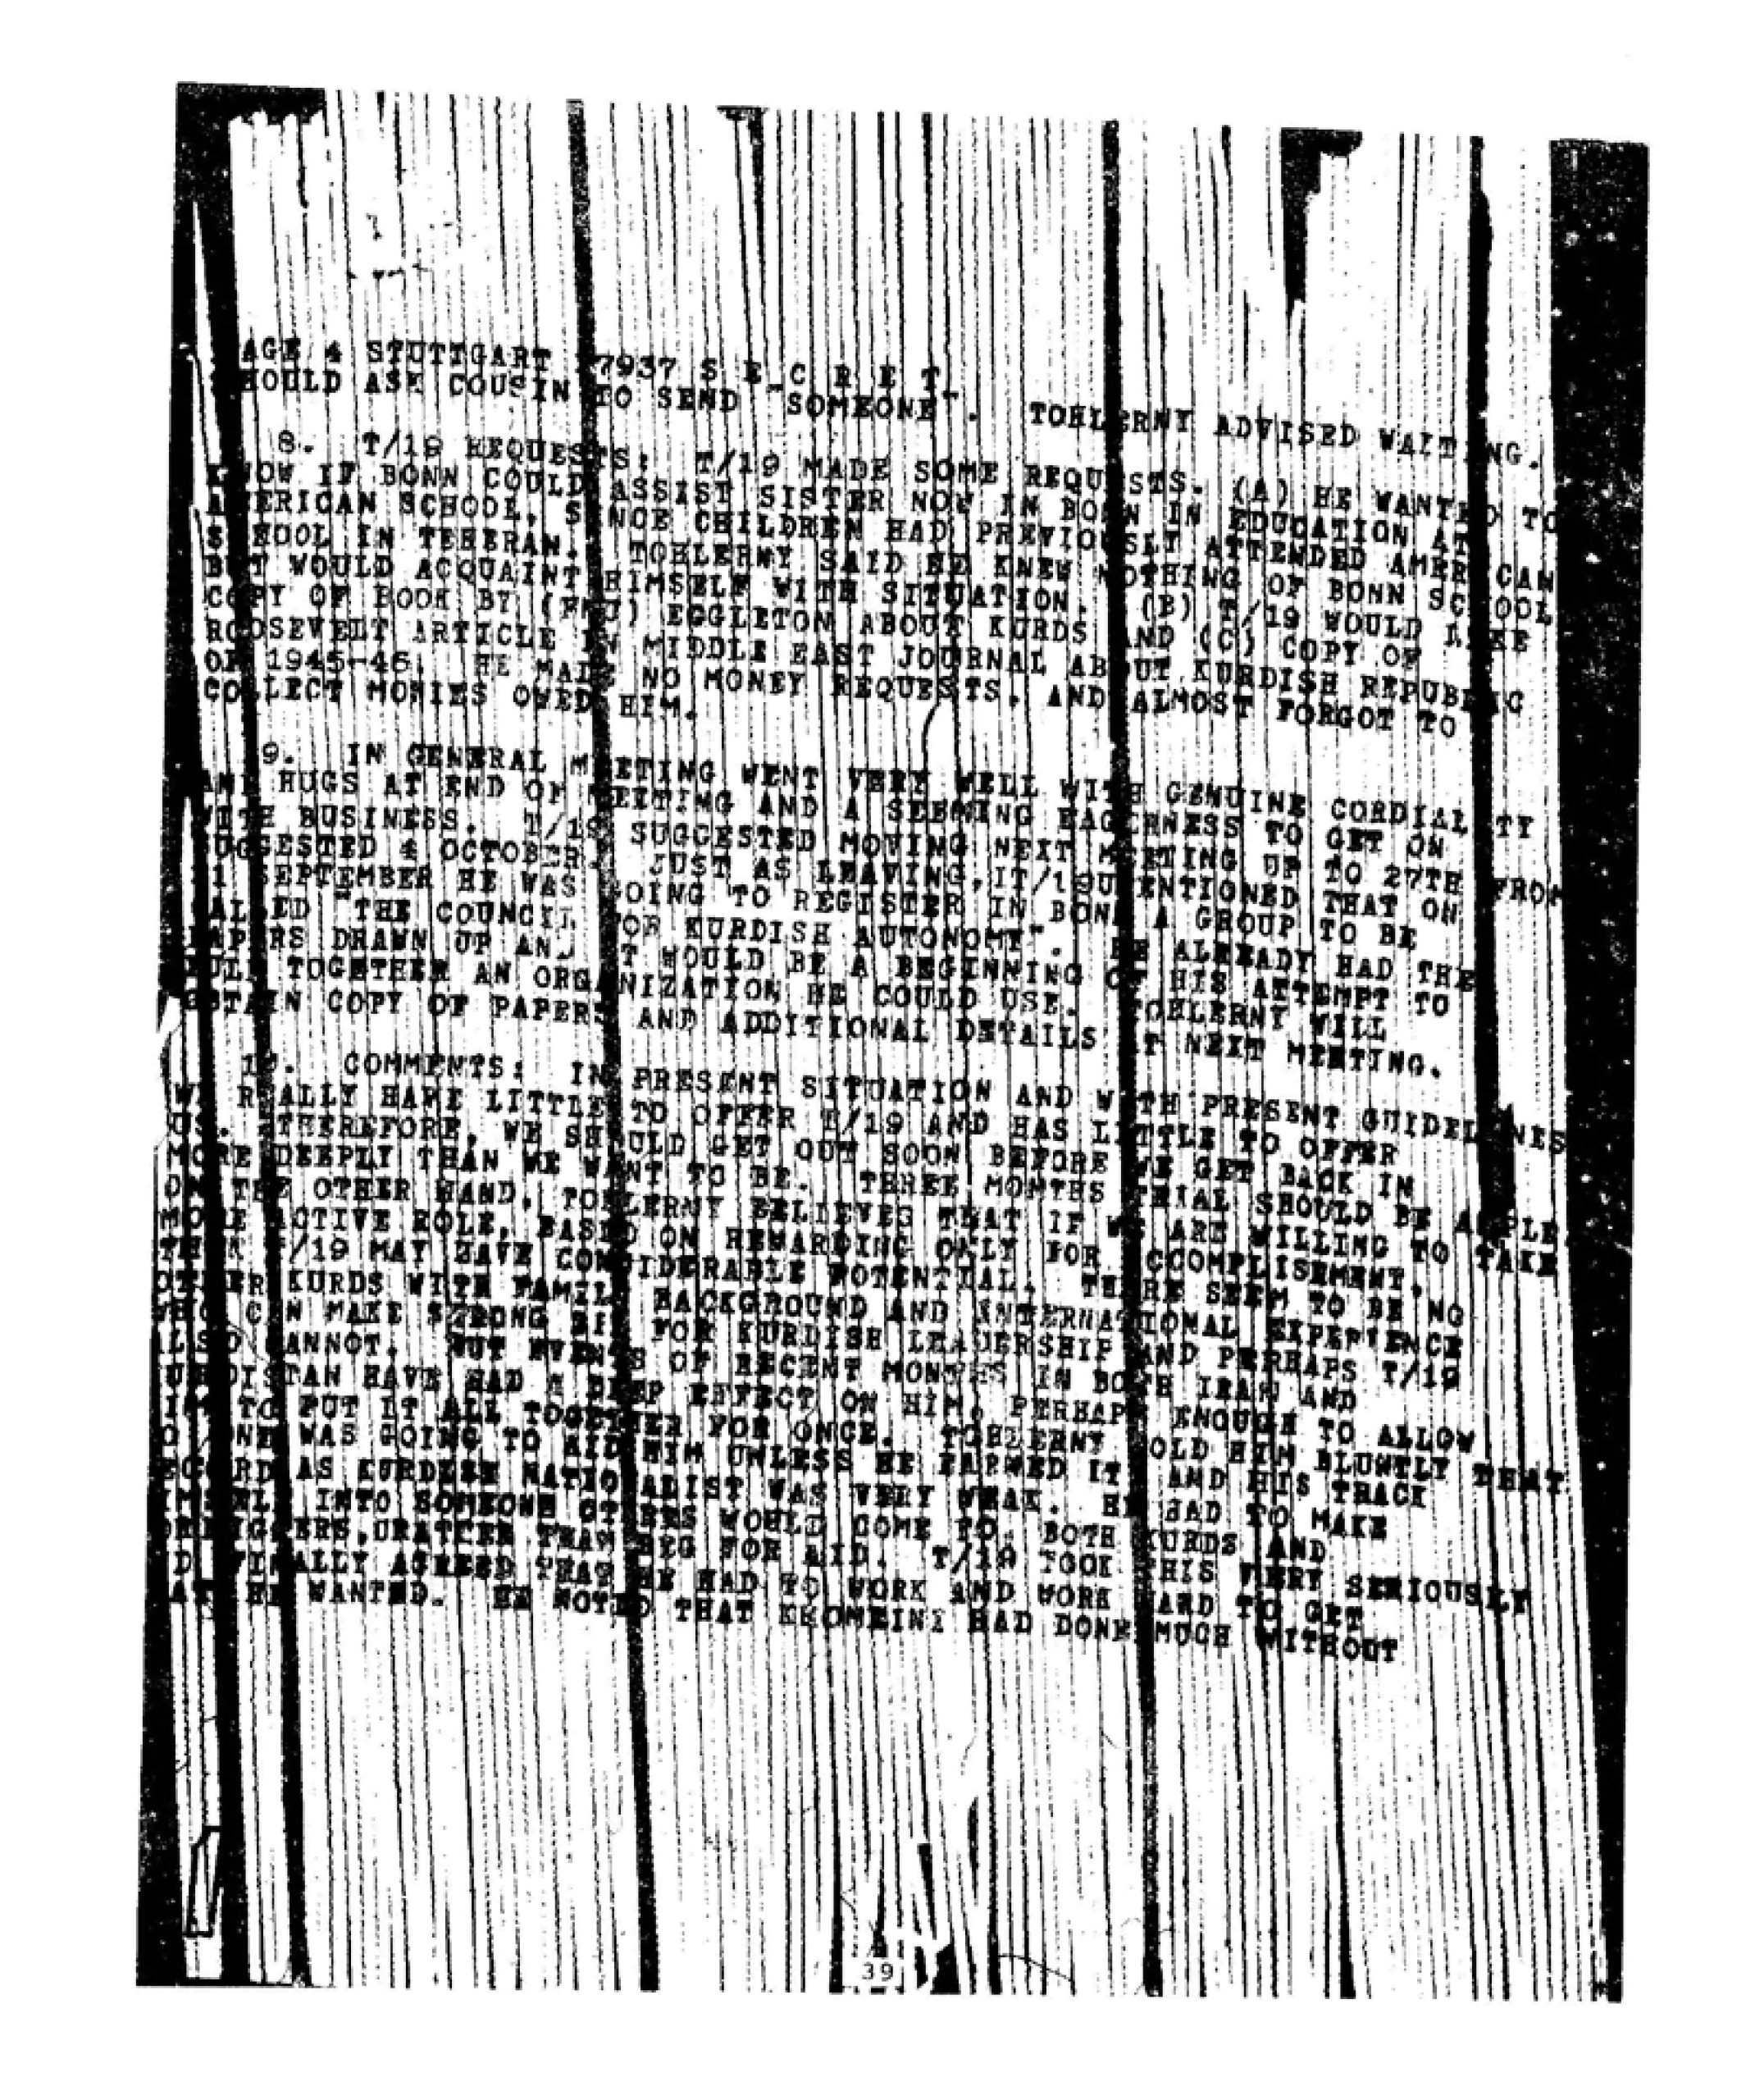 AGE 4 STUTTGART 7937 S E C R E T
HOULD ASK COUSIN TO SEND "SOMEONE". TOHLERNY ADVISED WAITING.
8. T/19 REQUESTS: T/19 MADE SOME REQUESTS. (A) HE WANTED TO
KNOW IF BONN COULD ASSIST SISTER NOW IN BONN IN EDUCATION AT
AMERICAN SCHOOL, SINCE CHILDREN HAD PREVIOUSLY ATTENDED AMERICAN
SCHOOL IN TEHERAN. TOHLERNY SAID HE KNEW NOTHING OF BONN SCHOOL
BUT WOULD ACQUAINT HIMSELF WITH SITUATION. (B) T/19 WOULD LIKE
COPY OF BOOK BY (FNU) EGGLETON ABOUT KURDS AND (C) COPY OF
ROOSEVELT ARTICLE IN MIDDLE EAST JOURNAL ABOUT KURDISH REPUBLIC
OF 1945-46. HE MADE NO MONEY REQUESTS, AND ALMOST FORGOT TO
COLLECT MONIES OWED HIM.
9. IN GENERAL MEETING WENT VERY WELL WITH GENUINE CORDIALITY
AND HUGS AT END OF MEETING AND A SEEMING EAGERNESS TO GET ON
WITH BUSINESS. T/19 SUGGESTED MOVING NEXT MEETING UP TO 27TH FROM
SUGGESTED 4 OCTOBER. JUST AS LEAVING, T/19 MENTIONED THAT ON
11 SEPTEMBER HE WAS GOING TO REGISTER IN BONN A GROUP TO BE
CALLED "THE COUNCIL FOR KURDISH AUTONOMY". HE ALREADY HAD THE
PAPERS DRAWN UP AND IT WOULD BE A BEGINNING OF HIS ATTEMPT TO
PULL TOGETHER AN ORGANIZATION HE COULD USE. TOHLERNY WILL
OBTAIN COPY OF PAPERS AND ADDITIONAL DETAILS AT NEXT MEETING.
10. COMMENTS: IN PRESENT SITUATION AND WITH PRESENT GUIDELINES
WE REALLY HAVE LITTLE TO OFFER T/19 AND HAS LITTLE TO OFFER
US. THEREFORE, WE SHOULD GET OUT SOON BEFORE WE GET BACK IN
MORE DEEPLY THAN WE WANT TO BE. THREE MONTHS TRIAL SHOULD BE AMPLE.
ON THE OTHER HAND, TOHLERNY BELIEVES THAT IF WE ARE WILLING TO TAKE
MORE ACTIVE ROLE, BASED ON REWARDING ONLY FOR ACCOMPLISEMENT,
THEN T/19 MAY HAVE CONSIDERABLE POTENTIAL. THERE SEEM TO BE NO
OTHER KURDS WITH FAMILY BACKGROUND AND INTERNATIONAL EXPERIENCE
WHO CAN MAKE STRONG BID FOR KURDISH LEADERSHIP AND PERHAPS T/19
ALSO CANNOT. BUT EVENTS OF RECENT MONTHS IN BOTH IRAN AND
URDISTAN HAVE HAD A DEEP EFFECT ON HIM, PERHAPS ENOUGH TO ALLOW
HIM TO PUT IT ALL TOGETHER FOR ONCE. TOHLERNY TOLD HIM BLUNTLY THAT
NO ONE WAS GOING TO AID HIM UNLESS HE EARNED IT AND HIS TRACK
RECORD AS KURDISH NATIONALIST WAS VERY WEAK. HE HAD TO MAKE
HIMSELF INTO SOMEONE OTHERS WOULD COME TO, BOTH KURDS AND
RATHER THAN BEG FOR AID. T/19 TOOK THIS VERY SERIOUSLY
AGREED THAT HE HAD TO WORK AND WORK HARD TO GET
WHAT HE WANTED. HE NOTED THAT KHOMEINI HAD DONE MUCH WITHOUT
39